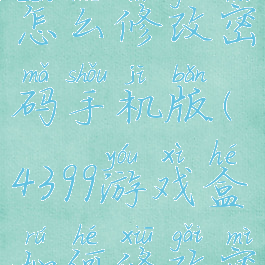 怎么修改密
mǎ shǒu jī bǎn
码手机版(
yóu xì hé
4399游戏盒
rú hé xiū gǎi mì
如何修改密